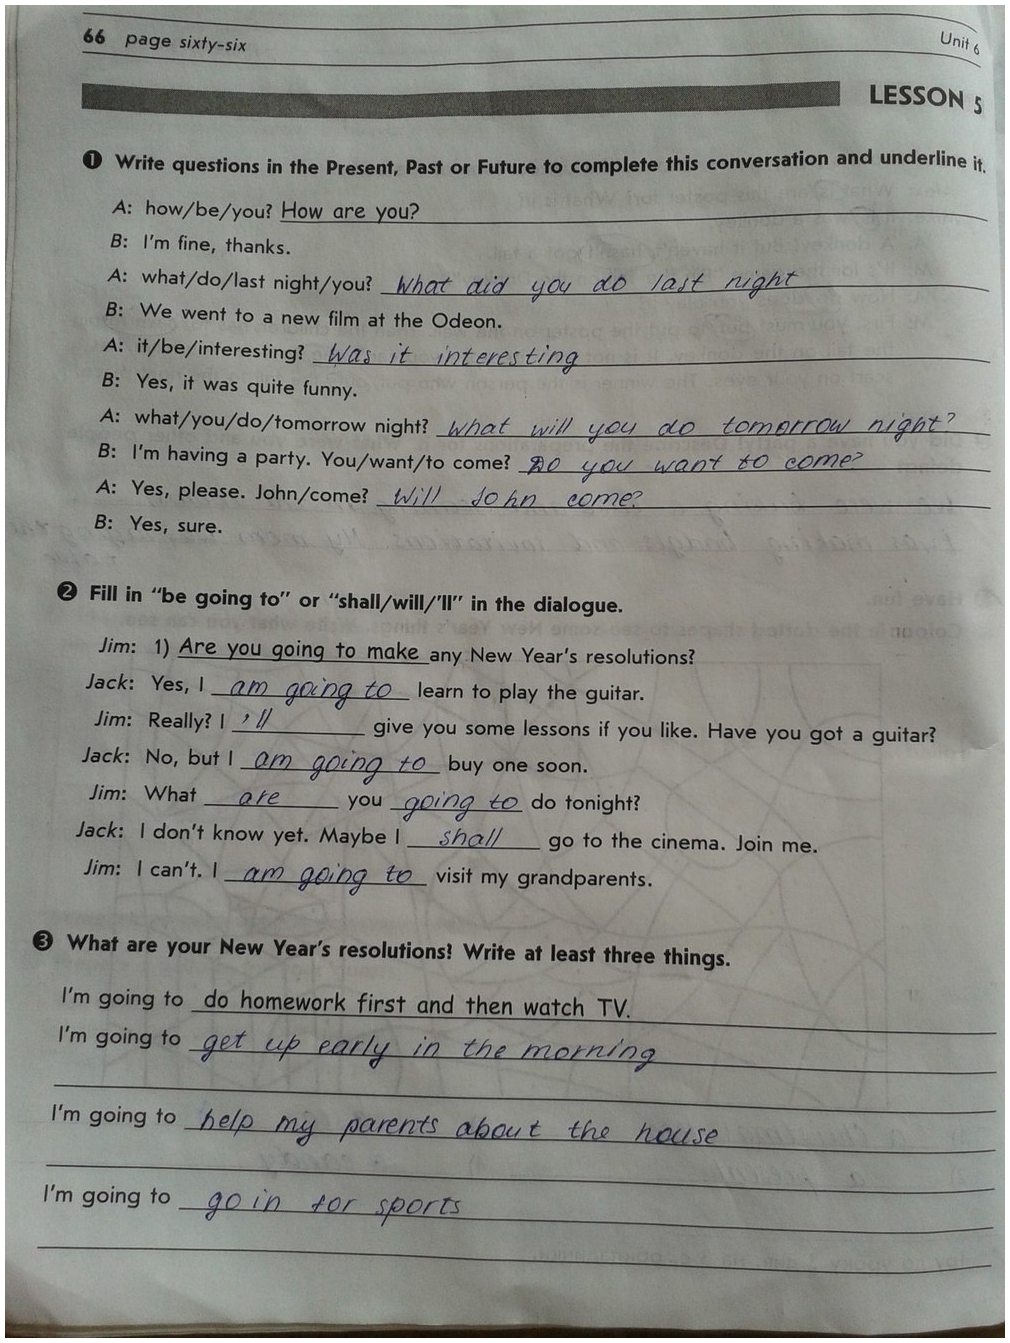 66 page sixty-six Unit 6
LESSON 5
❶ Write questions in the Present, Past or Future to complete this conversation and underline it.
A: how/be/you? How are you?
B: I'm fine, thanks.
A: what/do/last night/you? What did you do last night
B: We went to a new film at the Odeon.
A: it/be/interesting? Was it interesting
B: Yes, it was quite funny.
A: what/you/do/tomorrow night? What will you do tomorrow night?
B: I'm having a party. You/want/to come? Do you want to come?
A: Yes, please. John/come? Will John come?
B: Yes, sure.
❷ Fill in "be going to" or "shall/will/'ll" in the dialogue.
Jim: 1) Are you going to make any New Year's resolutions?
Jack: Yes, I am going to learn to play the guitar.
Jim: Really? I 'll give you some lessons if you like. Have you got a guitar?
Jack: No, but I am going to buy one soon.
Jim: What are you going to do tonight?
Jack: I don't know yet. Maybe I shall go to the cinema. Join me.
Jim: I can't. I am going to visit my grandparents.
❸ What are your New Year's resolutions? Write at least three things.
I'm going to do homework first and then watch TV.
I'm going to get up early in the morning
I'm going to help my parents about the house
I'm going to go in for sports